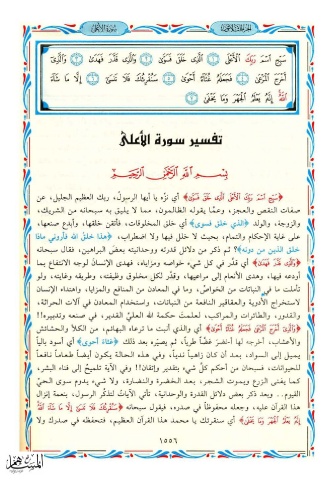 سورة الأعلى
سَبِّحِ اسْمَ رَبِّكَ الْأَعْلَى ۝ الَّذِي خَلَقَ فَسَوَّىٰ ۝ وَالَّذِي قَدَّرَ فَهَدَىٰ ۝ وَالَّذِي
أَخْرَجَ الْمَرْعَىٰ ۝ فَجَعَلَهُ غُثَاءً أَحْوَىٰ ۝ سَنُقْرِئُكَ فَلَا تَنسَىٰ ۝ إِلَّا مَا شَاءَ
اللَّهُ إِنَّهُ يَعْلَمُ الْجَهْرَ وَمَا يَخْفَىٰ ۝
تفسير سورة الأعلى
بسم الله الرحمن الرحيم
﴿سَبِّحِ اسْمَ رَبِّكَ الْأَعْلَى الَّذِي خَلَقَ فَسَوَّىٰ﴾ أي نزّه يا أيها الرسول، ربك العظيم الجليل، عن
صفات النقص والعجز، وعمّا يقوله الظالمون، مما لا يليق به سبحانه من الشريك،
والزوجة، والولد ﴿الذي خلق فسوى﴾ أي خلق المخلوقات، فأتقن خلقها، وأبدع صنعها،
على غاية الإحكام والتمام، بحيث لا خلل فيها ولا اضطراب، ﴿هذا خلق الله فأروني ماذا
خلق الذين من دونه﴾؟ ثم ذكر من دلائل قدرته ووحدانيته بعض البراهين، فقال سبحانه
﴿وَالَّذِي قَدَّرَ فَهَدَىٰ﴾ أي قدّر في كل شيء خواصه ومزاياه، فهدى الإنسان لوجه الانتفاع بما
أودعه فيها، وهدى الأنعام إلى مراعيها، وقدّر لكل مخلوق وظيفته، وطريقه وغايته، ولو
تأملت ما في النباتات من الخواصّ، وما في المعادن من المنافع والمزايا، واهتداء الإنسان
لاستخراج الأدوية والعقاقير النافعة من النباتات، واستخدام المعادن في آلات الحراثة،
والقدور، والطائرات والمراكب، لعلمت حكمة الله العليّ القدير، في صنعه وتدبيره!!
﴿وَالَّذِي أَخْرَجَ الْمَرْعَىٰ فَجَعَلَهُ غُثَاءً أَحْوَىٰ﴾ أي والذي أنبت ما ترعاه البهائم، من الكلأ والحشائش
والأعشاب، أخرجه لها أخضرَ غضّاً طرياً، ثم يصيّره بعد ذلك ﴿غثاءً أحوى﴾ أي أسود بالياً
يميل إلى السواد، بعد أن كان زاهياً ندياً، وفي هذه الحالة يكون أيضاً طعاماً نافعاً
للحيوانات، فسبحان من أحكم كلّ شيء بتقدير وإتقان!! وفي الآية تلميحٌ إلى فناء البشر،
كما يفنى الزرع ويموت الشجر، بعد الخضرة والنضارة، ولا شيء يدوم سوى الحيّ
القيوم.. وبعد ذكر بعض دلائل القدرة والوحدانية، تأتي الآياتُ لتذكّر الرسول، بنعمة إنزال
هذا القرآن عليه، وجعله محفوظاً في صدره، فيقول سبحانه ﴿سَنُقْرِئُكَ فَلَا تَنسَىٰ إِلَّا مَا شَاءَ اللَّهُ
إِنَّهُ يَعْلَمُ الْجَهْرَ وَمَا يَخْفَىٰ﴾ أي سنقرئك يا محمد هذا القرآن العظيم، فتحفظه في صدرك ولا
١٥٥٦